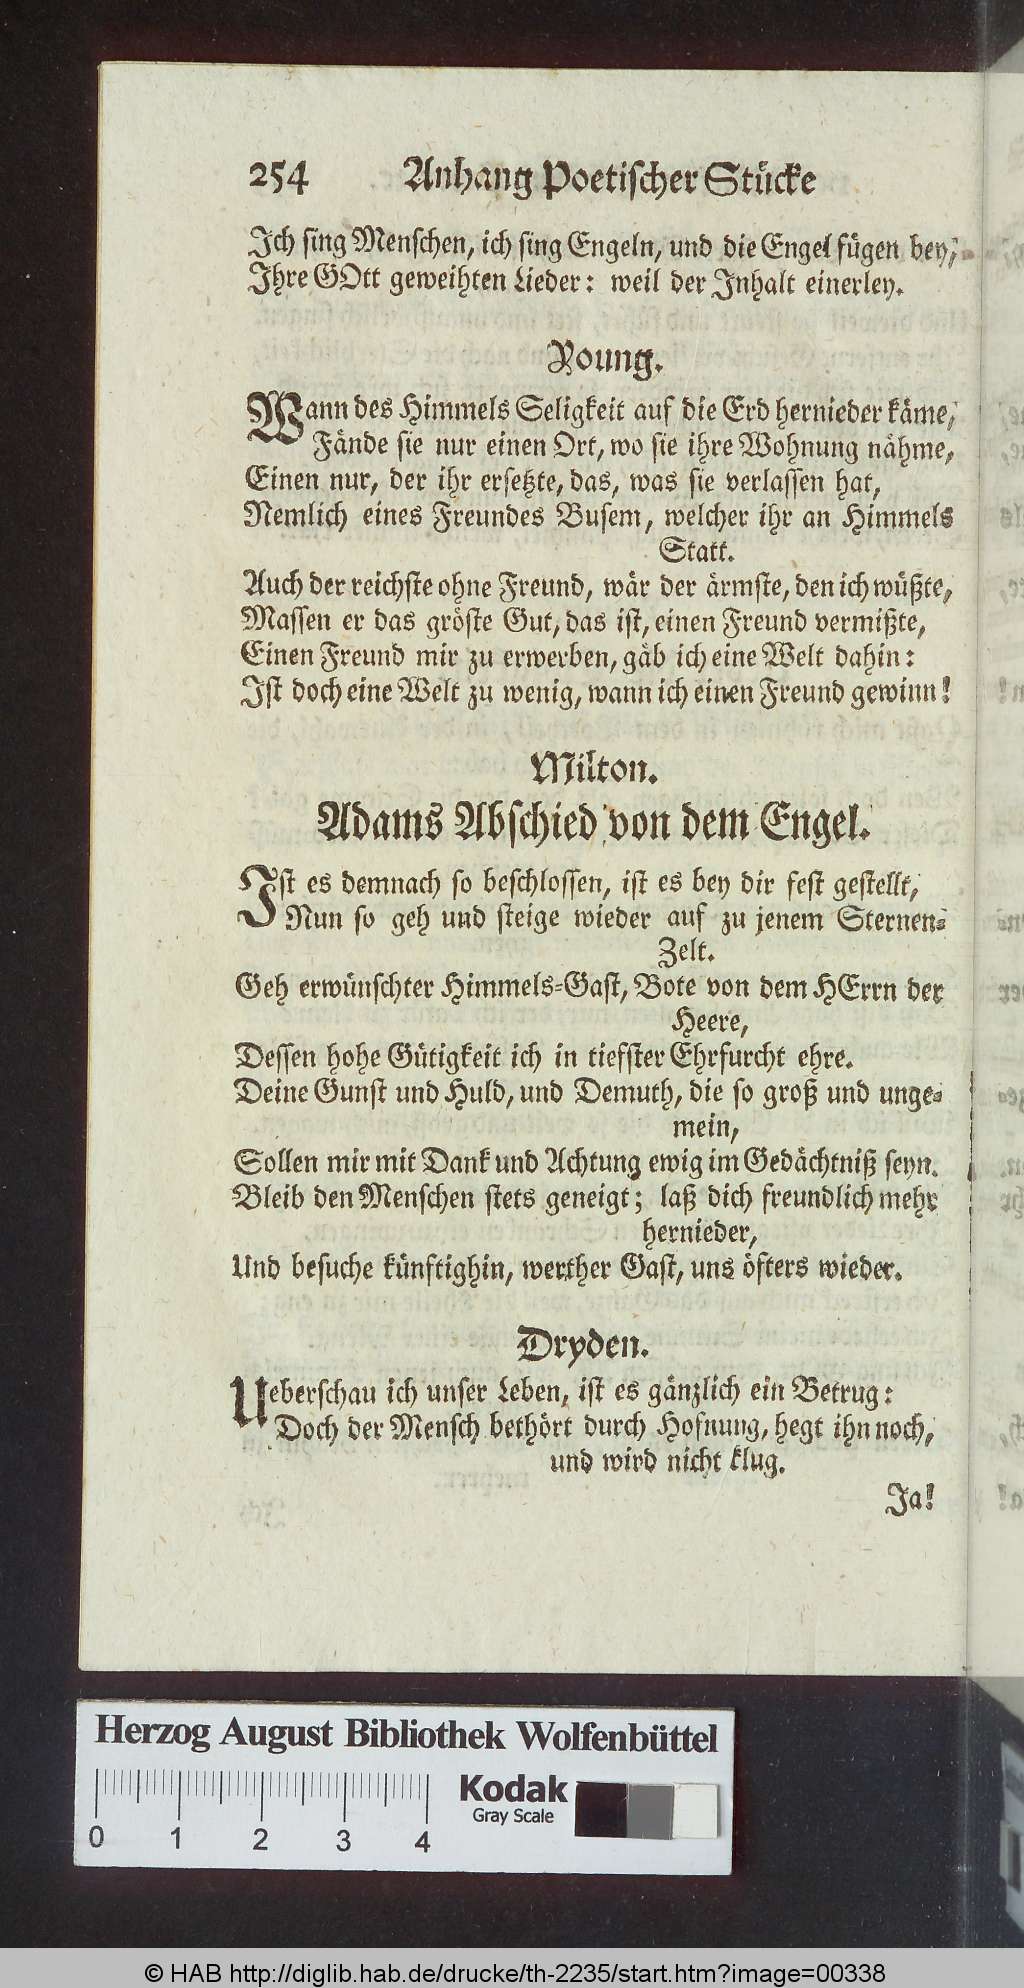 254 Anhang Poetischer Stücke
Ich sing Menschen, ich sing Engeln, und die Engel fügen bey,
Ihre GOtt geweihten Lieder: weil der Inhalt einerley.
Young.
Wann des Himmels Seligkeit auf die Erd hernieder käme,
Fände sie nur einen Ort, wo sie ihre Wohnung nähme,
Einen nur, der ihr ersetzte, das, was sie verlassen hat,
Nemlich eines Freundes Busem, welcher ihr an Himmels
Statt.
Auch der reichste ohne Freund, wär der ärmste, den ich wüßte,
Massen er das gröste Gut, das ist, einen Freund vermißte,
Einen Freund mir zu erwerben, gäb ich eine Welt dahin:
Ist doch eine Welt zu wenig, wann ich einen Freund gewinn!
Milton.
Adams Abschied von dem Engel.
Ist es demnach so beschlossen, ist es bey dir fest gestellt,
Nun so geh und steige wieder auf zu jenem Sternen-
Zelt.
Geh erwünschter Himmels-Gast, Bote von dem HErrn der
Heere,
Dessen hohe Gütigkeit ich in tiefster Ehrfurcht ehre.
Deine Gunst und Huld, und Demuth, die so groß und unge-
mein,
Sollen mir mit Dank und Achtung ewig im Gedächtniß seyn.
Bleib den Menschen stets geneigt; laß dich freundlich mehr
hernieder,
Und besuche künftighin, werther Gast, uns öfters wieder.
Dryden.
Ueberschau ich unser Leben, ist es gänzlich ein Betrug:
Doch der Mensch bethört durch Hofnung, hegt ihn noch,
und wird nicht klug.
Ja!
Herzog August Bibliothek Wolfenbüttel
Kodak
Gray Scale
0 1 2 3 4
© HAB http://diglib.hab.de/drucke/th-2235/start.htm?image=00338